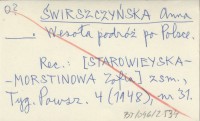 ŚWIRSZCZYŃSKA Anna
—. Wesoła podróż po Polsce.
Rec.: [STAROWIEYSKA-
-MORSTINOWA Zofia] zsm.,
Tyg. Powsz. 4 (1948), nr 31.